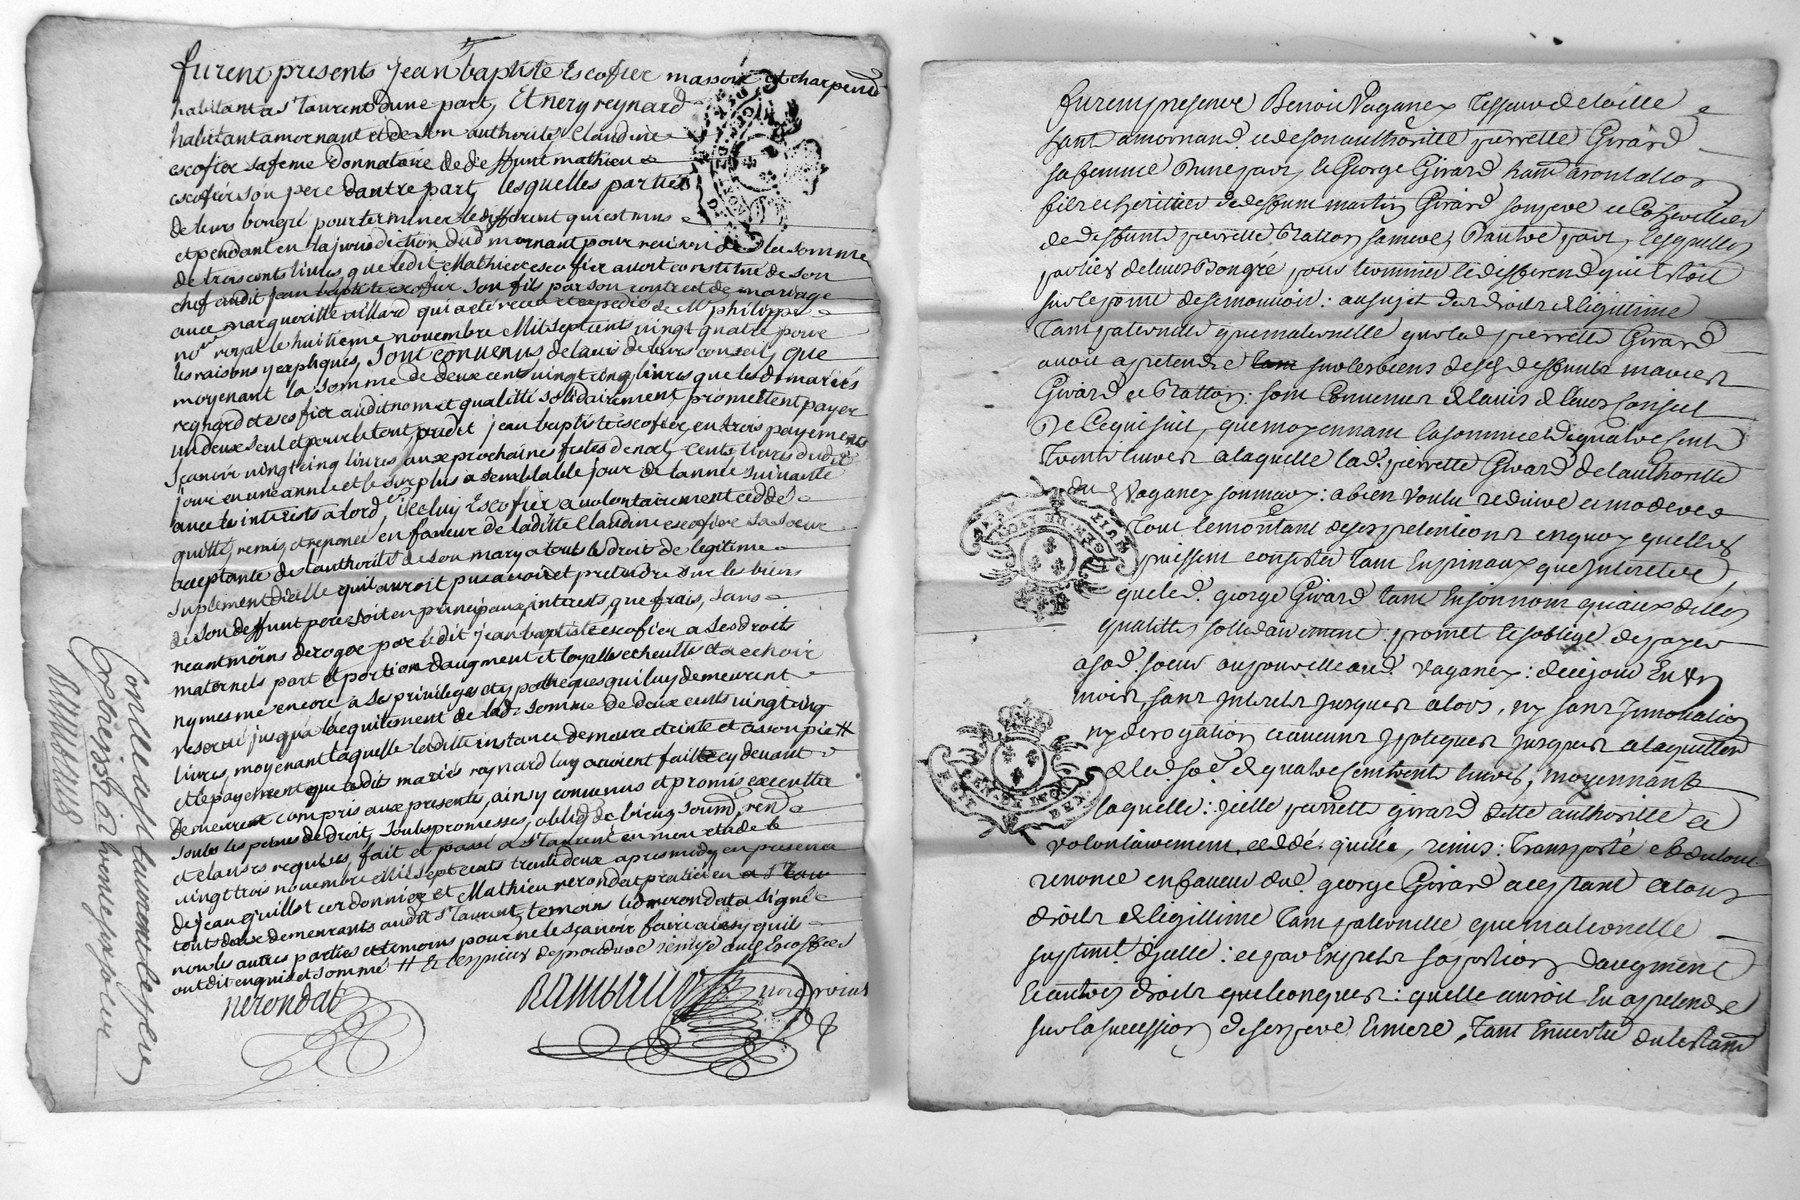 furent presents Jean baptiste Escofier masson et charpend
habitant a st laurent dune part, Et nery reynard
habitant a mornant et de son authorité Claudine
escofier sa feme donnataire de deffunt mathieu
escofier son pere dautre part, lesquelles parties
de leurs bongré pour terminer le different qui est mus
et pendant en la jurisdiction dud mornant pour raison de la somme
de trois cents livres, que ledit Mathieu escofier avoit constitué de son
chef audit jean baptiste escofier son fils par son contrat de mariage
avec margueritte aillard qui a eté receu et expedié de Me philippe
nore royal le huitieme novembre Mil sept cents vingt quatre pour
les raisons y expliqués, Sont convenus de lavis de leurs conseils que
moyenant la somme de deux cents vingt cinq livres que lesd mariés
reynard et escofier audit nom et qualitté solidairement promettent payer
un deux seul et pour le tout audit jean baptiste escofier, en trois payements
sçavoir vingt cinq livres aux prochaines festes de noel, cents livres dudit
jour en une année et le surplus a semblable jour de lannée suivante
avec les interests a lord. icelluy Escofier a volontairement ceddé
quitté, remis, et renoncé en faveur de laditte Claudine escofier sa soeur
acceptante de lauthorité de son mary a tout le droit de legitime
suplement dicelle quil auroit pu avoir et pretendre sur les biens
de son deffunt pere soit en principaux, interests, que frais, sans
neantmoins deroger par ledit jean baptiste escofier a ses droits
maternels part et portion daugment et loyalle echeutte et a echoir
ny mesme encore a ses privileges et ypotheques qui luy demeurent
reservé jusqua lacquitement de lad. somme de deux cents vingt cinq
livres, moyenant laquelle laditte instance demeure eteinte et assoupie #
et le payement que lesdit mariés reynard luy avoient faitte cy devant
demeurent compris aux presentes, ainsy convenus et promis executter
soubs les peines de droit, soubs promesses, oblig. de biens, soumon, ren
et clauses requises, fait et passé a st laurent en mon etude le
vingt trois novembre Mil sept cents trente deux apres midy en presence
de jean guillot cordonnier et Mathieu nerondat praticien
touts deux demeurants audit st laurent, temoins led nerondat a signé
non les autres parties et temoins pour ne le sçavoir faire ainsy quils
ont dit enquis et sommé # Et les pieces de procedure remise audit Escoffier
nerondat
Conlle a st laurent le
furent presence Benoit Vaganey Tisseur de toille
hant a mornand. et de son authoritté pierrette Girard
sa femme Dune part, & George Girard hant a rontallon
fils et heritier de deffunt martin Girard son pere et
de deffunte pierrette Rattons sa mere, Dautre part, lesquelles
parties de leurs Bongré pour terminer le differend qui Estoit
sur le point de se mouvoir: au sujet des droits de legitime
tant paternelle que maternelle que lad pierrette Girard
avoit a pretendre sur les biens desd deffunts maries
Girard et Ratton: sont Convenus de lavis de leurs Conseil
De Ce qui suit, que moyennant la somme de quatre cent
Trente livres a laquelle lad. pierrette Girard de lauthoritte
du d Vaganey son mary: a bien voulu reduire et moderer
tout le montant de ses pretentions en quoy quelles
puissent consister tant En prinaux que Interets
que led. george Girard tant En son nom quaux dittes
qualittes sollidairement promet et soblige de payer
a sad. soeur ou pour elle aud. Vaganey: de ce jour En
mois, sans Interets jusques alors, ny sans Innovation
ny derogation a aucuns ypoteques jusques a laquittem
de lad. soe. de quatre cent trent livres, moyennant
laquelle: icelle pierrette girard ditte authoritte a
volontairement, ceddé, quitté, remis: transporté et du tout
renoncé en faveur dud. george Girard acceptant a tous
droits de legittime tant paternelle que maternelle
supleme. dicelle: et par Expres sa portion daugment
Et autres droits quelconques: quelle auroit Eu a pretendre
sur la succession de ses pere Et mere, tant En vertu du testam